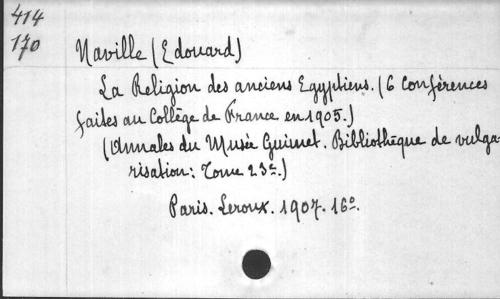 414
170
Naville (Edouard)
La Religion des anciens Egyptiens. (6 Conférences
faites au Collège de France en 1905.)
(Annales du Musée Guimet. Bibliothèque de vulga-
risation: Tome 23e.)
Paris. Leroux. 1907. 16o.